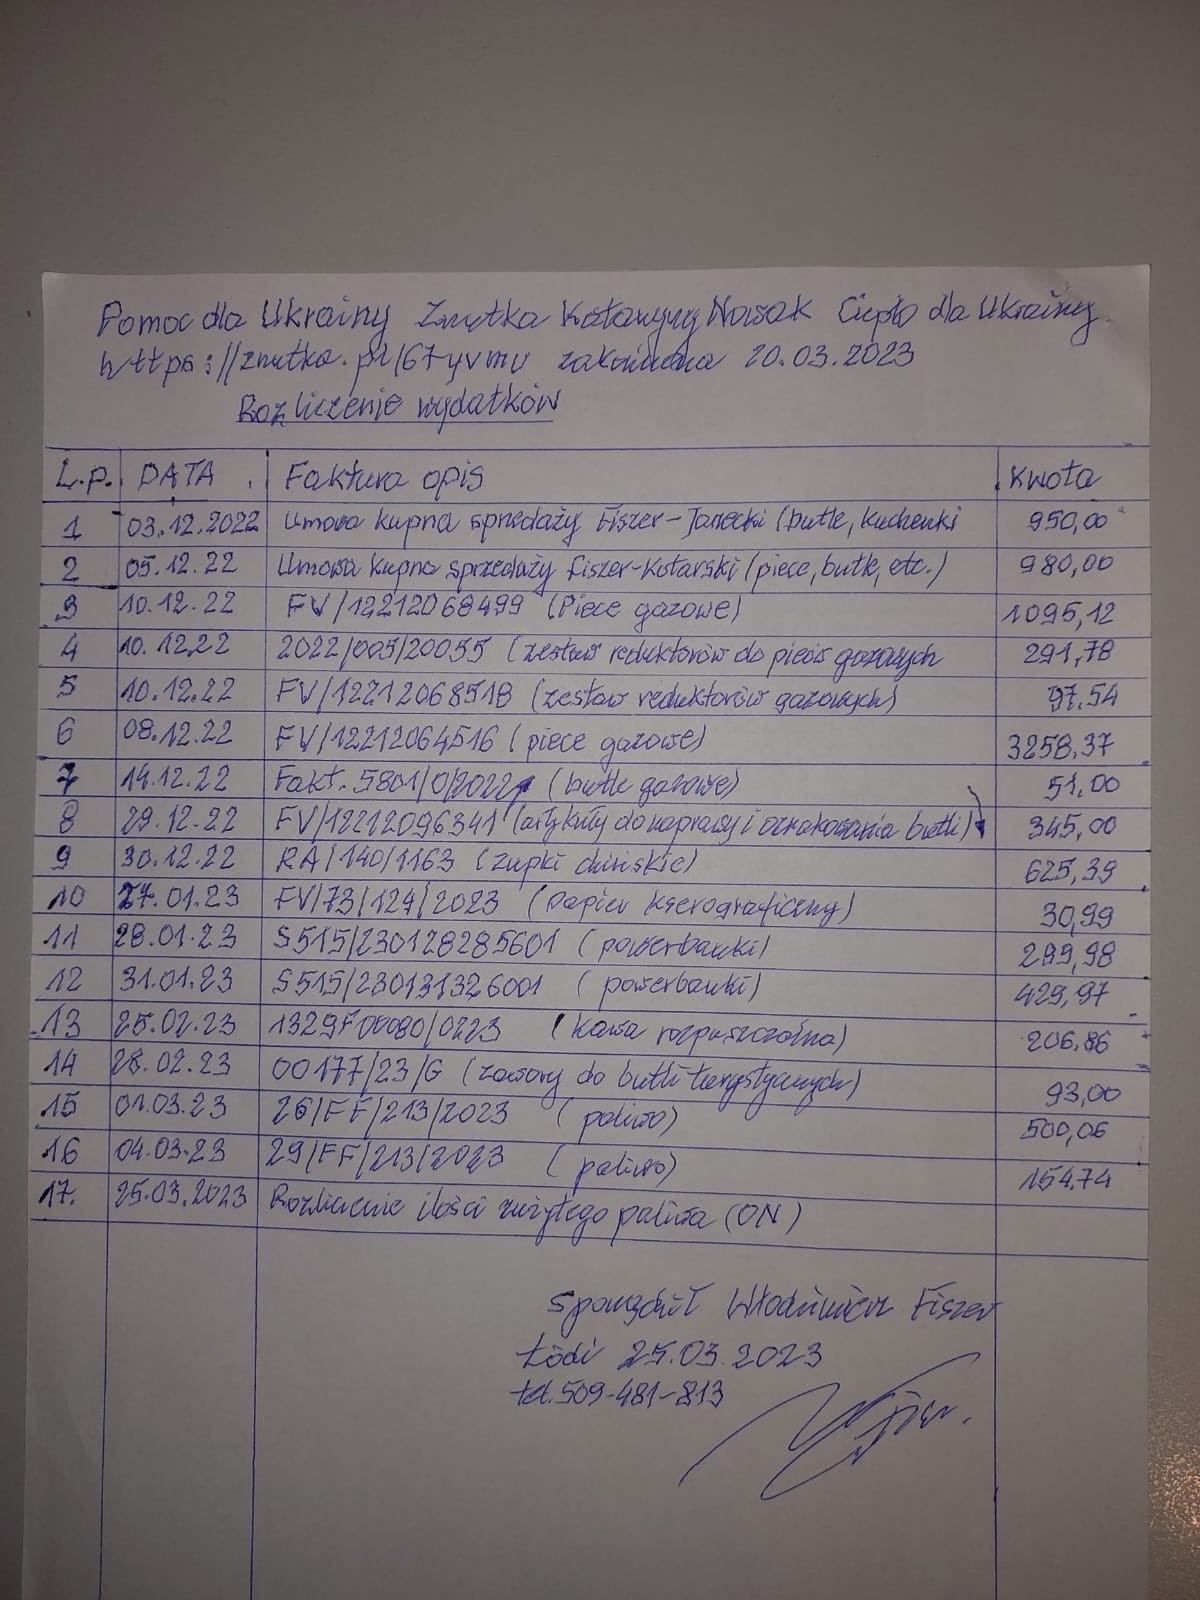 Pomoc dla Ukrainy Zrzutka Katarzyny Nowak Ciepło dla Ukrainy
https://zrzutka.pl/67yvmv zakończona 20.03.2023
Rozliczenie wydatków
L.p. DATA Faktura opis Kwota
1 03.12.2022 Umowa kupna sprzedaży Fiszer-Janecki (butle, kuchenki 950,00
2 05.12.22 Umowa kupna sprzedaży Fiszer-Kotarski (piece, butle, etc.) 980,00
3 10.12.22 FV/12212068499 (Piece gazowe) 1095,12
4 10.12.22 2022/005/20055 (zestaw reduktorów do pieców gazowych 291,78
5 10.12.22 FV/12212068518 (zestaw reduktorów gazowych) 97.54
6 08.12.22 FV/12212064516 (piece gazowe) 3258,37
7 14.12.22 Fakt. 5801/0/2022 (butle gazowe) 51,00
8 29.12.22 FV/12212096341 (artykuły do naprawy i oznakowania butli) 345,00
9 30.12.22 RA/140/1163 (zupki chińskie) 625,39
10 27.01.23 FV/73/124/2023 (papier kserograficzny) 30,99
11 28.01.23 S515/230128285601 (powerbanki) 299,98
12 31.01.23 S515/230131326001 (powerbanki) 429,97
13 25.02.23 1329F00080/0223 (kawa rozpuszczalna) 206,86
14 28.02.23 00177/23/G (zawory do butli turystycznych) 93,00
15 01.03.23 26/FF/213/2023 (paliwo) 500,06
16 04.03.23 29/FF/213/2023 (paliwo) 154.74
17. 25.03.2023 Rozliczenie ilości zużytego paliwa (ON)
Sporządził Włodzimierz Fiszer
Łódź 25.03.2023
tel. 509-481-813